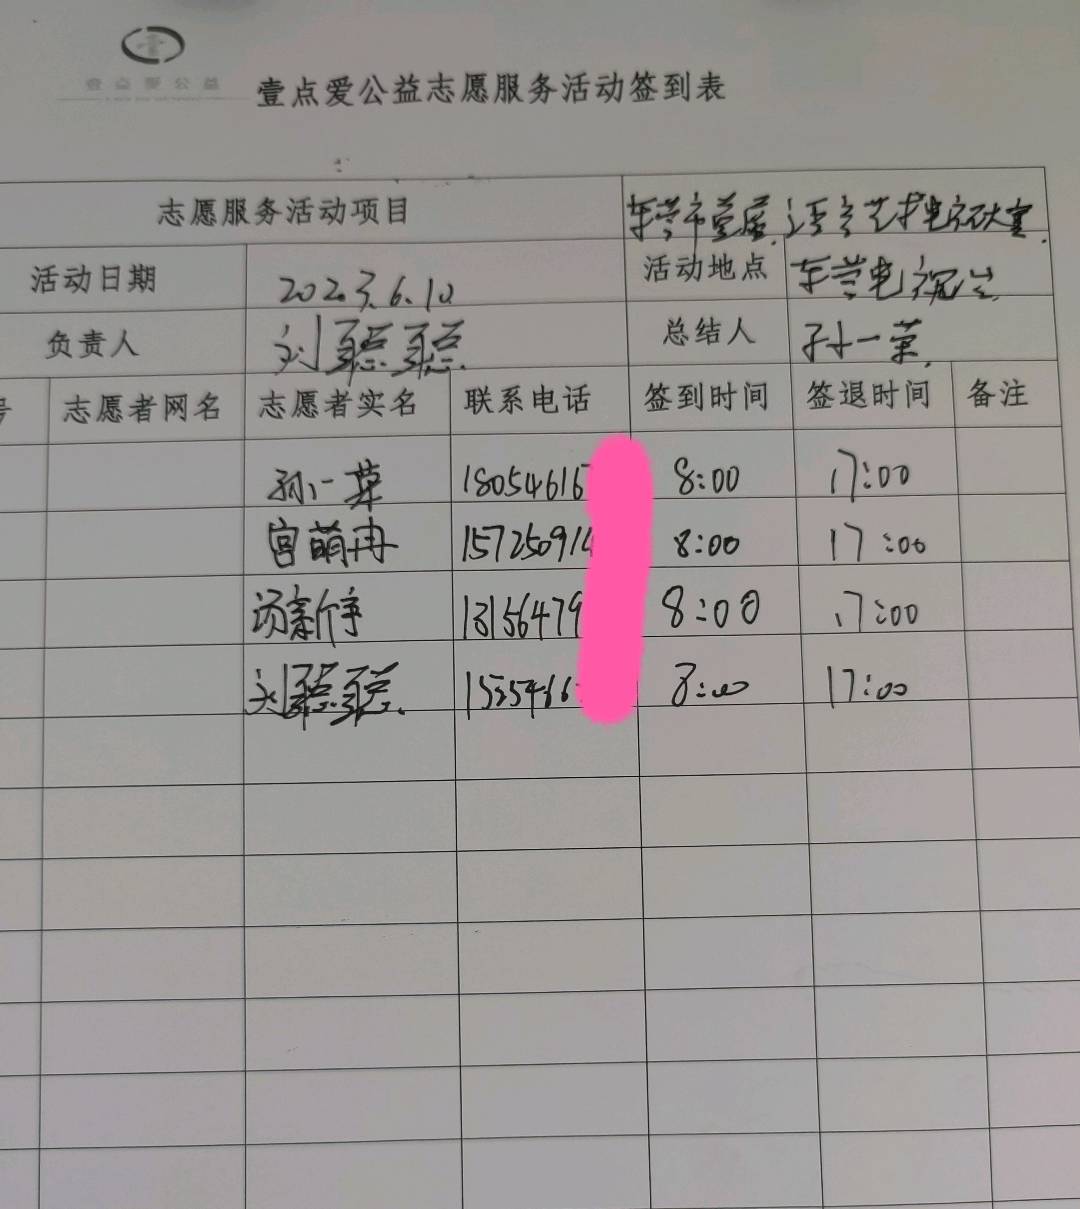 壹点爱公益
壹点爱公益志愿服务活动签到表
志愿服务活动项目 东营市首届语言艺术电视大赛.
活动日期 2023.6.10 活动地点 东营电视台
负责人 刘聪聪. 总结人 孙一荣.
号 志愿者网名 志愿者实名 联系电话 签到时间 签退时间 备注
孙一荣 18054616 8:00 17:00
宫萌冉 157250914 8:00 17:00
13156479 8:00 17:00
刘聪聪. 1535466 8:00 17:00